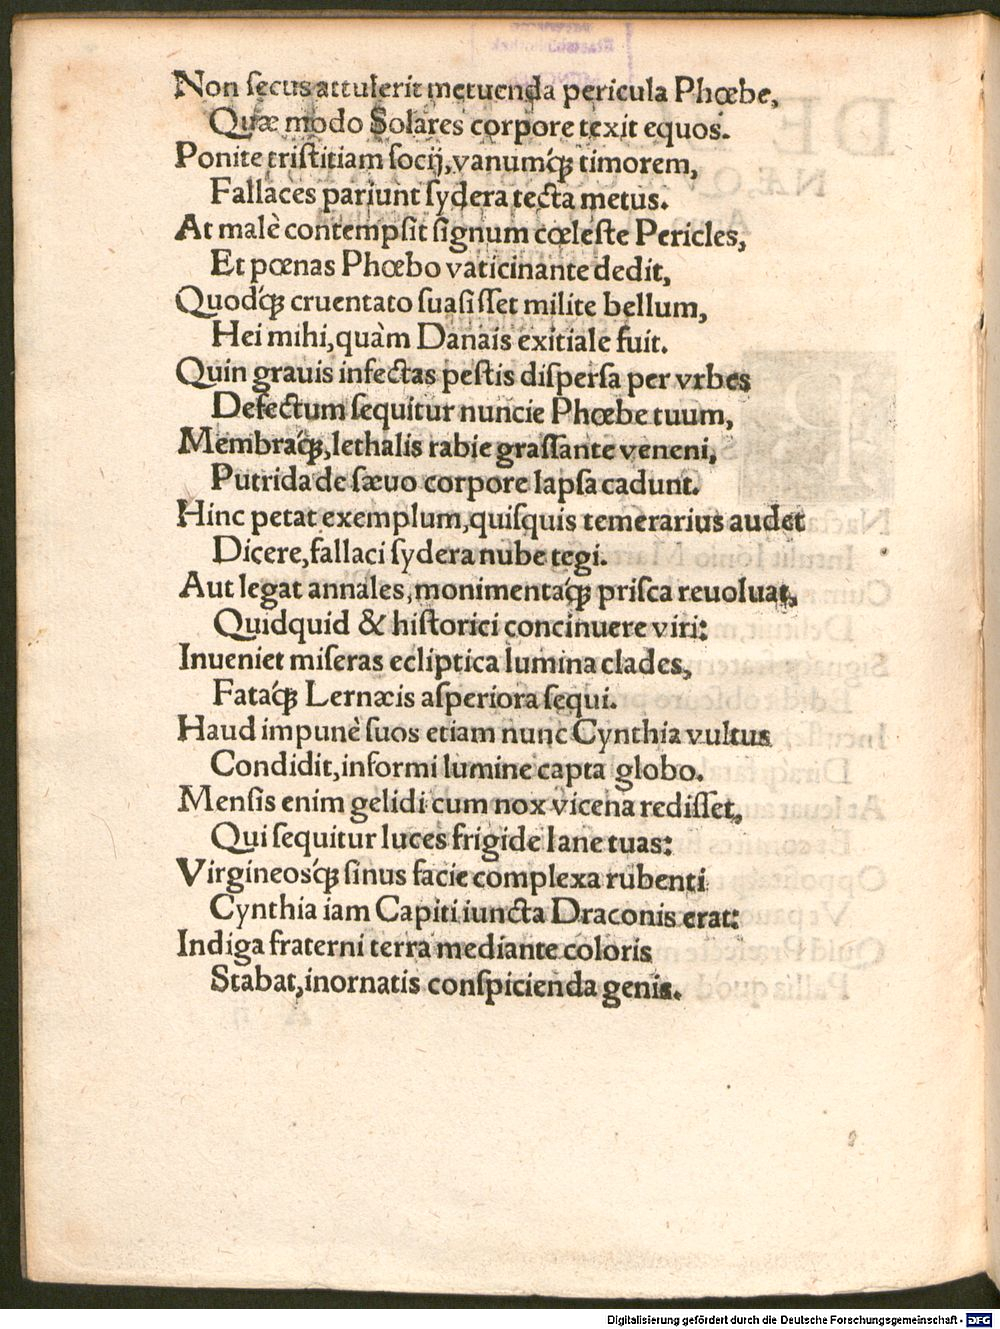 Non ſecus attulerit metuenda pericula Phœbe,
Quæ modo Solares corpore texit equos.
Ponite triſtitiam ſocij, vanumq́; timorem,
Fallaces pariunt ſydera tecta metus.
At malè contempſit ſignum cœleſte Pericles,
Et pœnas Phœbo vaticinante dedit,
Quodq́; cruentato ſuaſiſſet milite bellum,
Hei mihi, quàm Danais exitiale fuit.
Quin grauis infectas peſtis diſperſa per vrbes
Defectum ſequitur nuncie Phœbe tuum,
Membraq́;, lethalis rabie graſſante veneni,
Putrida de ſæuo corpore lapſa cadunt.
Hinc petat exemplum, quiſquis temerarius audet
Dicere, fallaci ſydera nube tegi.
Aut legat annales, monimentaq́; priſca reuoluat,
Quidquid & hiſtorici concinuere viri:
Inueniet miſeras ecliptica lumina clades,
Fataq́; Lernæis aſperiora ſequi.
Haud impunè ſuos etiam nunc Cynthia vultus
Condidit, informi lumine capta globo.
Menſis enim gelidi cum nox vicena rediſſet,
Qui ſequitur luces frigide Iane tuas:
Virgineosq́; ſinus facie complexa rubenti
Cynthia iam Capiti iuncta Draconis erat:
Indiga fraterni terra mediante coloris
Stabat, inornatis conſpicienda genis.
Digitalisierung gefördert durch die Deutsche Forschungsgemeinschaft - DFG